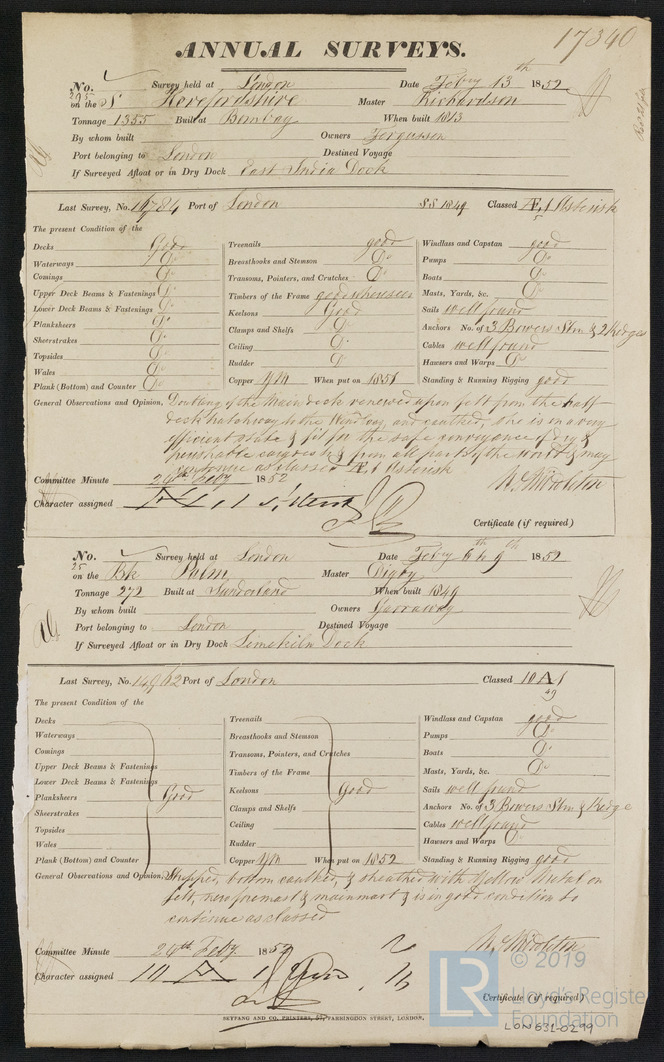 17340
ANNUAL SURVEYS.
No. 295 Survey held at London Date Feby 13th 1852
on the S Herefordshire Master Richardson
Tonnage 1355 Built at Bombay When built 1813
By whom built Owners Fergusson
Port belonging to London Destined Voyage
If Surveyed Afloat or in Dry Dock East India Dock
Last Survey, No. 14784 Port of London SS 1849 Classed Æ 1 Asterisk
The present Condition of the
Decks Good
Waterways Do
Comings Do
Upper Deck Beams & Fastenings Do
Lower Deck Beams & Fastenings Do
Planksheers Do
Sheerstrakes Do
Topsides Do
Wales Do
Plank (Bottom) and Counter Do
Treenails good
Breasthooks and Stemson Do
Transoms, Pointers, and Crutches Do
Timbers of the Frame good where seen
Keelsons Good
Clamps and Shelfs Do
Ceiling Do
Rudder Do
Copper YM When put on 1851
Windlass and Capstan good
Pumps Do
Boats Do
Masts, Yards, &c. Do
Sails well found
Anchors No. of 3 Bowers Stm & 2 Kedges
Cables well found
Hawsers and Warps Do
Standing & Running Rigging good
General Observations and Opinion, Doubling of the Main deck renewed upon felt from the half
deck hatchway to the Windlass, and caulked, She is in a very
efficient state & fit for the safe conveyance of dry &
perishable cargoes to & from all parts of the world & may
continue as classed Æ 1 Asterisk
Committee Minute 24th Feby 1852
W. Middleton
Character assigned
Certificate (if required)
No. 25 Survey held at London Date Feby 6th & 9th 1852
on the Bk Palm Master Digby
Tonnage 272 Built at Sunderland When built 1849
By whom built Owners Garraway
Port belonging to London Destined Voyage
If Surveyed Afloat or in Dry Dock Limekiln Dock
Last Survey, No. 14962 Port of London Classed 10 A 1
49
The present Condition of the
Decks
Waterways
Comings
Upper Deck Beams & Fastenings
Lower Deck Beams & Fastenings
Planksheers Good
Sheerstrakes
Topsides
Wales
Plank (Bottom) and Counter
Treenails
Breasthooks and Stemson
Transoms, Pointers, and Crutches
Timbers of the Frame
Keelsons Good
Clamps and Shelfs
Ceiling
Rudder
Copper YM When put on 1852
Windlass and Capstan good
Pumps Do
Boats Do
Masts, Yards, &c. Do
Sails well found
Anchors No. of 3 Bowers Stm & Kedge
Cables well found
Hawsers and Warps Do
Standing & Running Rigging good
General Observations and Opinion, Stripped, bottom caulked, & sheathed with Yellow Metal on
felt, new foremast & mainmast & is in good condition to
continue as classed
Committee Minute 24th Feby 1852
W. Middleton
Character assigned 10 A 1
Certificate (if required)
SEYFANG AND CO. PRINTERS, 57, FARRINGDON STREET, LONDON.
LR © 2019
Lloyd's Register
Foundation
LON631-0299